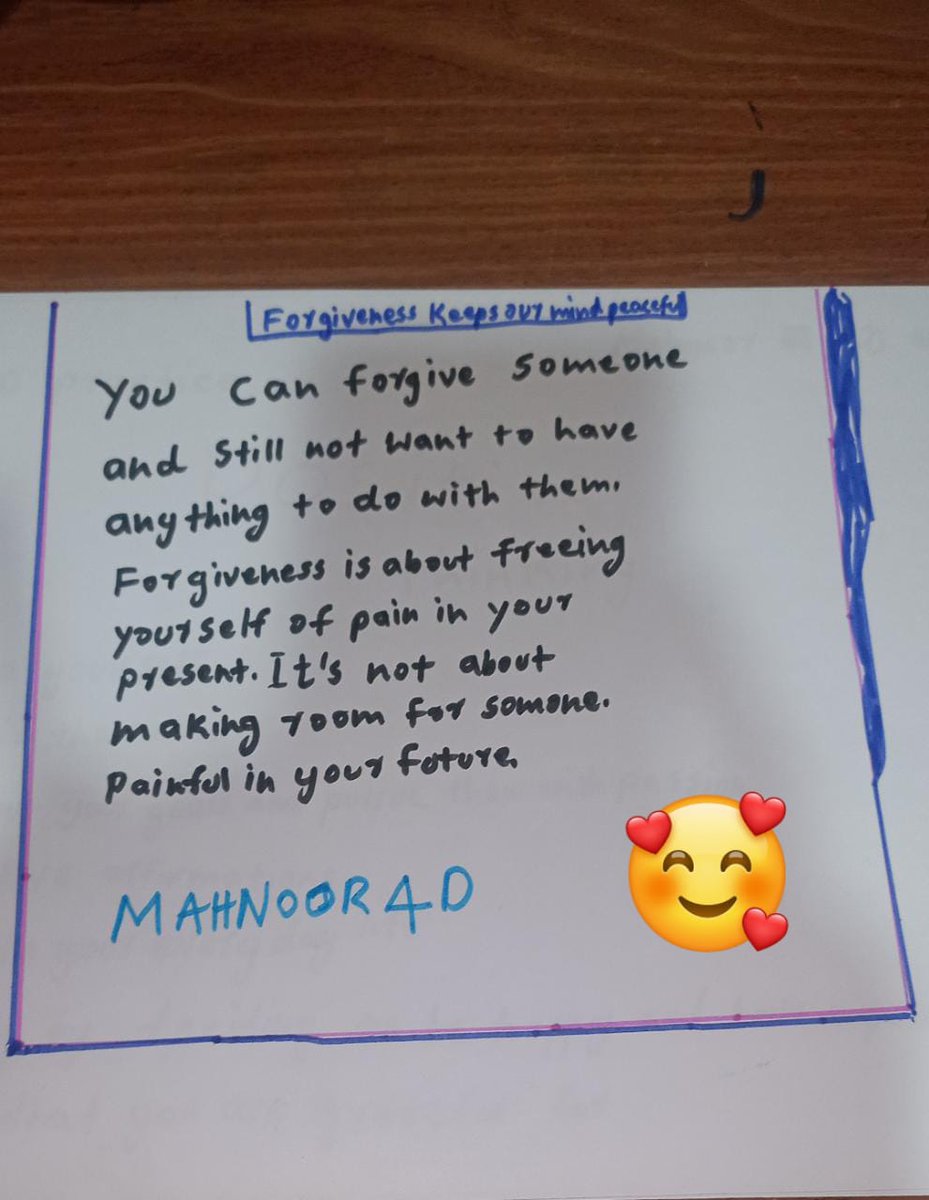 J
Forgiveness Keeps our mind peaceful
You can forgive someone
and still not want to have
anything to do with them.
Forgiveness is about freeing
yourself of pain in your
present. It's not about
making room for somone.
Painful in your future.
MAHNOOR 4 D